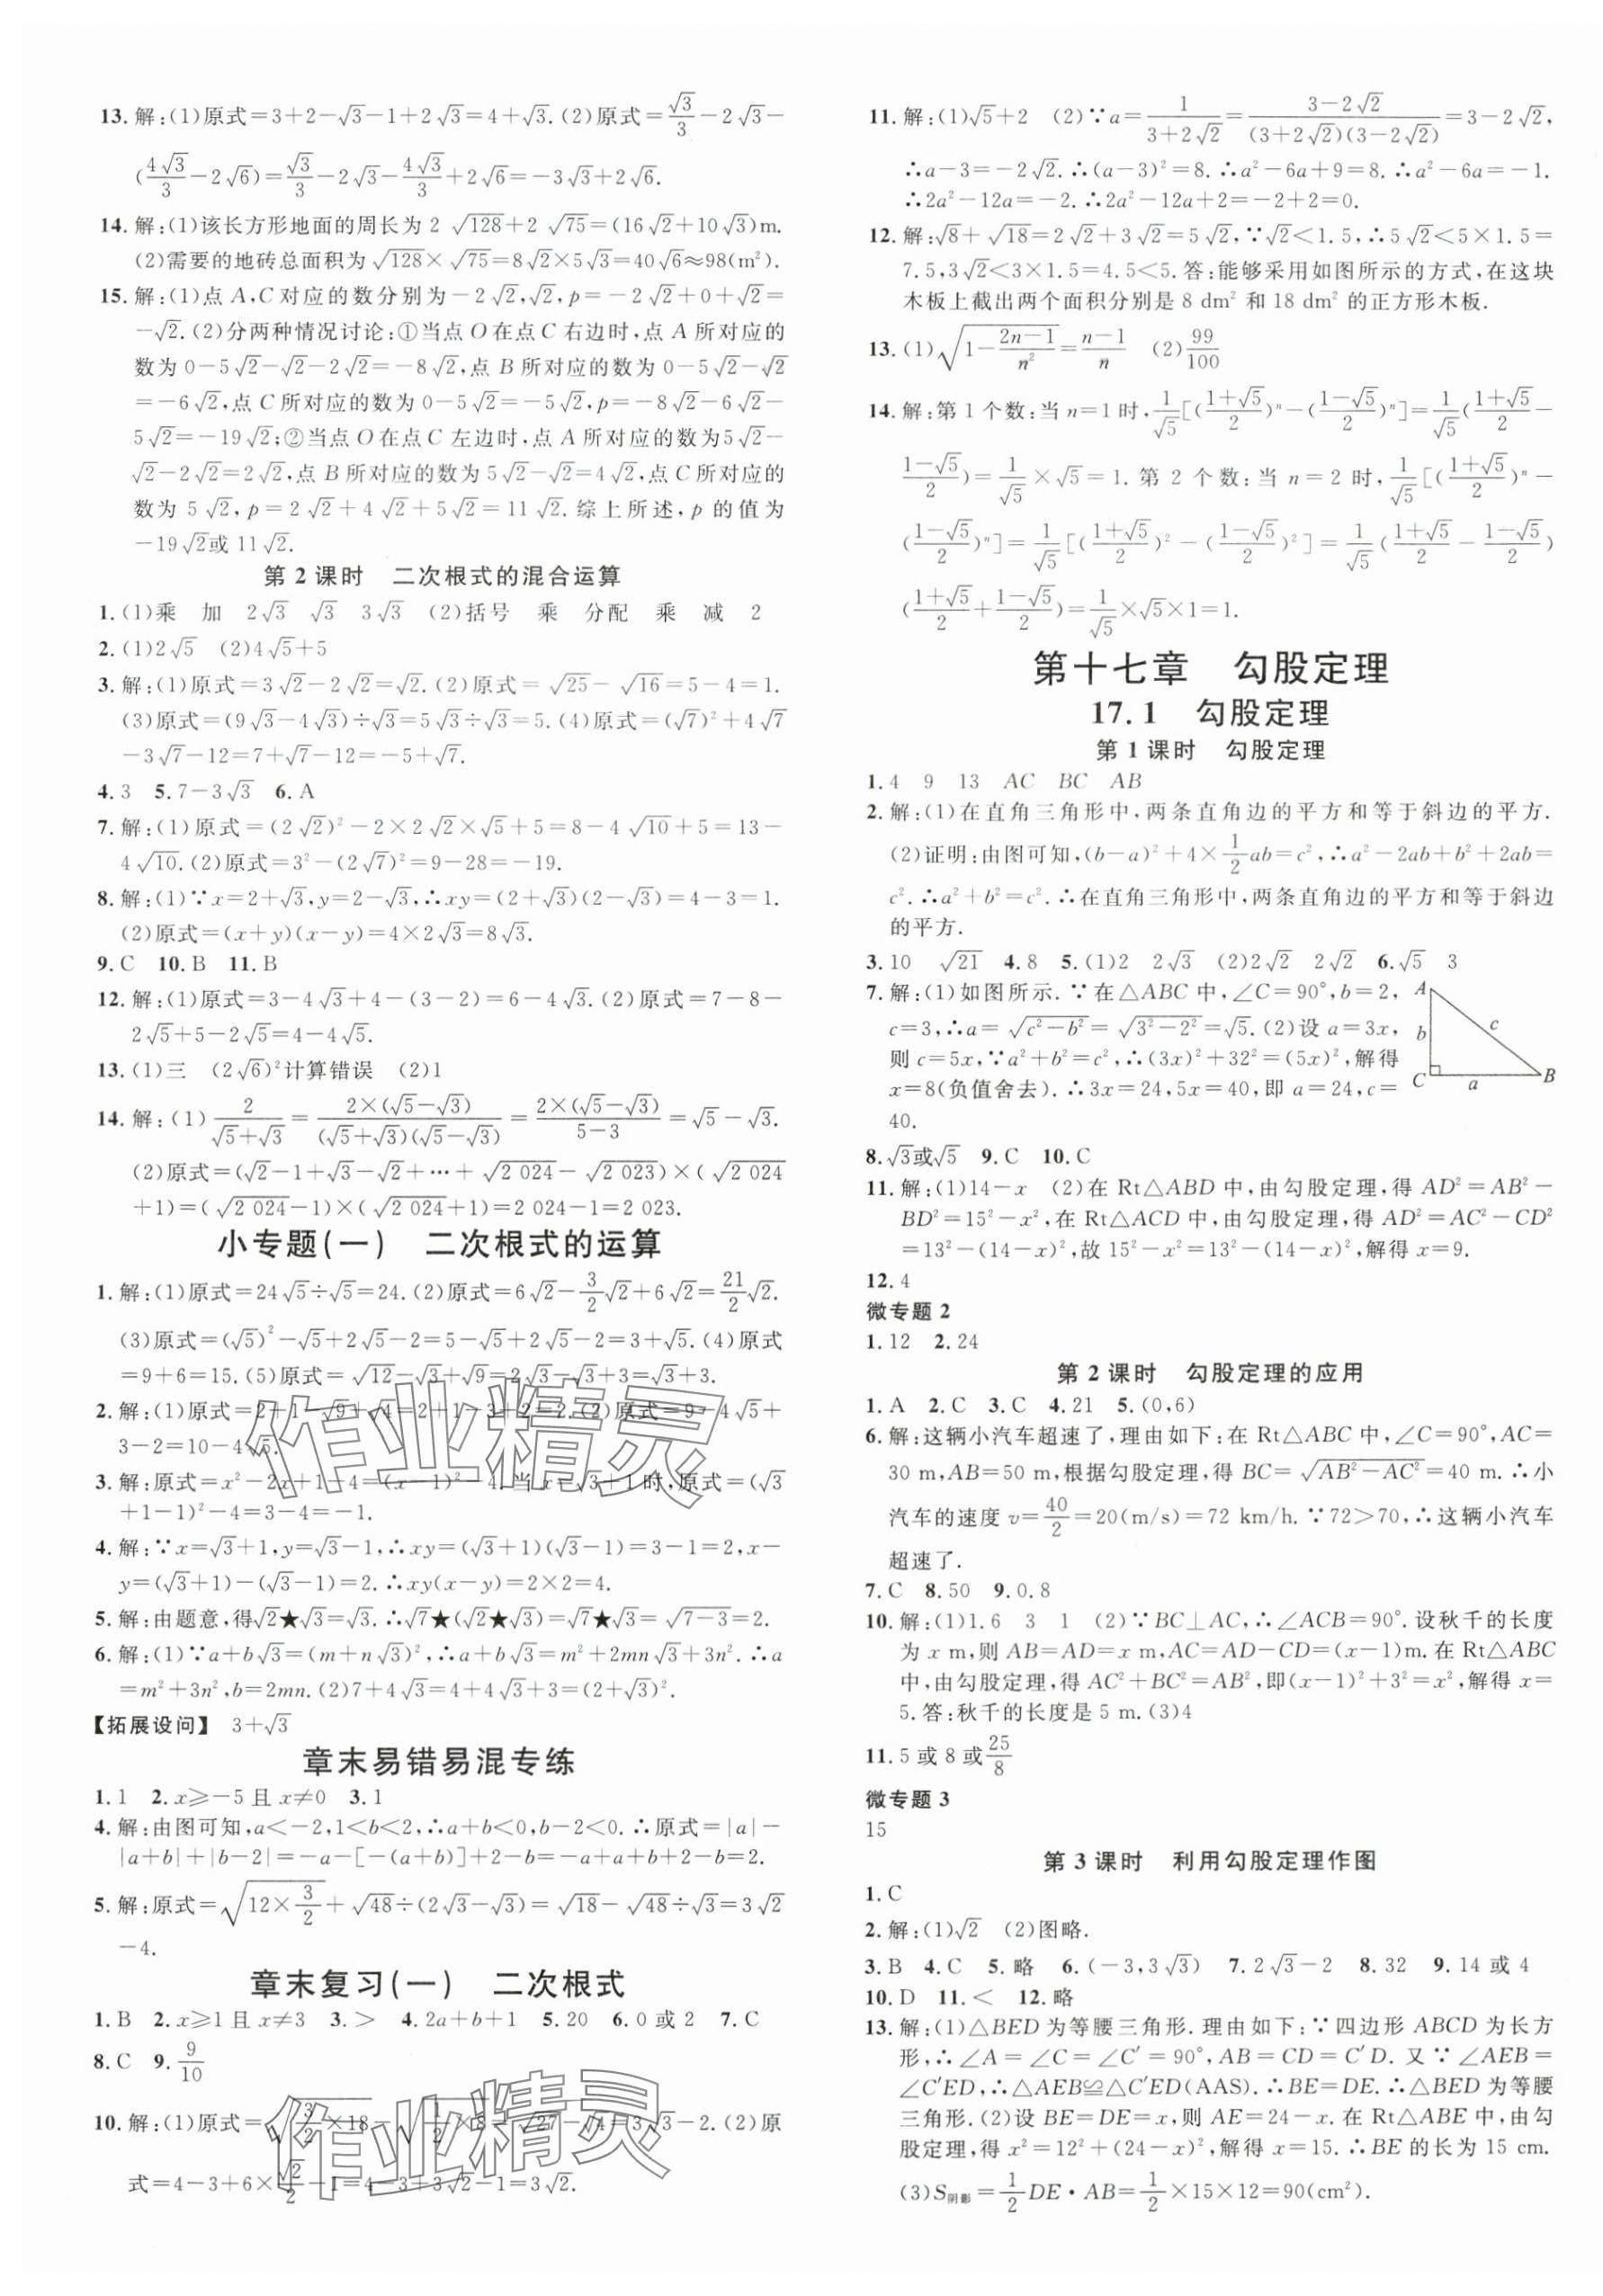 13.解:(1)原式=3+2-√3-1+2√3=4+√3.(2)原式=√3/3-2√3-
(4√3/3-2√6)=√3/3-2√3-4√3/3+2√6=-3√3+2√6.
14.解:(1)该长方形地面的周长为2√128+2√75=(16√2+10√3)m.
(2)需要的地砖总面积为√128×√75=8√2×5√3=40√6≈98(m²).
15.解:(1)点A,C对应的数分别为-2√2,√2,p=-2√2+0+√2=
-√2.(2)分两种情况讨论:①当点O在点C右边时,点A所对应的
数为0-5√2-√2-2√2=-8√2,点B所对应的数为0-5√2-√2
=-6√2,点C所对应的数为0-5√2=-5√2,p=-8√2-6√2-
5√2=-19√2;②当点O在点C左边时,点A所对应的数为5√2-
√2-2√2=2√2,点B所对应的数为5√2-√2=4√2,点C所对应的
数为5√2,p=2√2+4√2+5√2=11√2.综上所述,p的值为
-19√2或11√2.
第2课时 二次根式的混合运算
1.(1)乘 加 2√3 √3 3√3 (2)括号 乘 分配 乘 减 2
2.(1)2√5 (2)4√5+5
3.解:(1)原式=3√2-2√2=√2.(2)原式=√25-√16=5-4=1.
(3)原式=(9√3-4√3)÷√3=5√3÷√3=5.(4)原式=(√7)²+4√7
-3√7-12=7+√7-12=-5+√7.
4.3 5.7-3√3 6.A
7.解:(1)原式=(2√2)²-2×2√2×√5+5=8-4√10+5=13-
4√10.(2)原式=3²-(2√7)²=9-28=-19.
8.解:(1)∵x=2+√3,y=2-√3,∴xy=(2+√3)(2-√3)=4-3=1.
(2)原式=(x+y)(x-y)=4×2√3=8√3.
9.C 10.B 11.B
12.解:(1)原式=3-4√3+4-(3-2)=6-4√3.(2)原式=7-8-
2√5+5-2√5=4-4√5.
13.(1)三 (2√6)²计算错误 (2)1
14.解:(1)2/(√5+√3)=2×(√5-√3)/((√5+√3)(√5-√3))=2×(√5-√3)/(5-3)=√5-√3.
(2)原式=(√2-1+√3-√2+⋯+√2 024-√2 023)×(√2 024
+1)=(√2 024-1)×(√2 024+1)=2 024-1=2 023.
小专题(一) 二次根式的运算
1.解:(1)原式=24√5÷√5=24.(2)原式=6√2-3/2√2+6√2=21/2√2.
(3)原式=(√5)²-√5+2√5-2=5-√5+2√5-2=3+√5.(4)原式
=9+6=15.(5)原式=√12-√3+√9=2√3-√3+3=√3+3.
2.解:(1)原式=2+1-√9+√4=2+1-3+2=2.(2)原式=9-4√5+
3-2=10-4√5.
3.解:原式=x²-2x+1-4=(x-1)²-4.当x=√3+1时,原式=(√3
+1-1)²-4=3-4=-1.
4.解:∵x=√3+1,y=√3-1,∴xy=(√3+1)(√3-1)=3-1=2,x-
y=(√3+1)-(√3-1)=2.∴xy(x-y)=2×2=4.
5.解:由题意,得√2★√3=√3.∴√7★(√2★√3)=√7★√3=√(7-3)=2.
6.解:(1)∵a+b√3=(m+n√3)²,∴a+b√3=m²+2mn√3+3n².∴a
=m²+3n²,b=2mn.(2)7+4√3=4+4√3+3=(2+√3)².
【拓展设问】 3+√3
章末易错易混专练
1.1 2.x≥-5且x≠0 3.1
4.解:由图可知,a<-2,1<b<2,∴a+b<0,b-2<0.∴原式=|a|-
|a+b|+|b-2|=-a-[-(a+b)]+2-b=-a+a+b+2-b=2.
5.解:原式=√(12×3/2)+√48÷(2√3-√3)=√18-√48÷√3=3√2
-4.
章末复习(一) 二次根式
1.B 2.x≥1且x≠3 3.> 4.2a+b+1 5.20 6.0或2 7.C
8.C 9.9/10
10.解:(1)原式=√(3/2×18)-√(1/2×8)=√27-√4=3√3-2.(2)原
式=4-3+6×√2/2-1=4-3+3√2-1=3√2.
11.解:(1)√5+2 (2)∵a=1/(3+2√2)=(3-2√2)/((3+2√2)(3-2√2))=3-2√2,
∴a-3=-2√2.∴(a-3)²=8.∴a²-6a+9=8.∴a²-6a=-1.
∴2a²-12a=-2.∴2a²-12a+2=-2+2=0.
12.解:√8+√18=2√2+3√2=5√2,∵√2<1.5,∴5√2<5×1.5=
7.5,3√2<3×1.5=4.5<5.答:能够采用如图所示的方式,在这块
木板上截出两个面积分别是8 dm²和18 dm²的正方形木板.
13.(1)√(1-(2n-1)/n²)=(n-1)/n (2)99/100
14.解:第1个数:当n=1时,1/√5[((1+√5)/2)ⁿ-((1-√5)/2)ⁿ]=1/√5((1+√5)/2-
(1-√5)/2)=1/√5×√5=1.第2个数:当n=2时,1/√5[((1+√5)/2)ⁿ-
((1-√5)/2)ⁿ]=1/√5[((1+√5)/2)²-((1-√5)/2)²]=1/√5((1+√5)/2-(1-√5)/2)
((1+√5)/2+(1-√5)/2)=1/√5×√5×1=1.
第十七章 勾股定理
17.1 勾股定理
第1课时 勾股定理
1.4 9 13 AC BC AB
2.解:(1)在直角三角形中,两条直角边的平方和等于斜边的平方.
(2)证明:由图可知,(b-a)²+4×1/2ab=c²,∴a²-2ab+b²+2ab=
c².∴a²+b²=c².∴在直角三角形中,两条直角边的平方和等于斜边
的平方.
3.10 √21 4.8 5.(1)2 2√3 (2)2√2 2√2 6.√5 3
7.解:(1)如图所示.∵在△ABC中,∠C=90°,b=2,
c=3,∴a=√(c²-b²)=√(3²-2²)=√5.(2)设a=3x,
则c=5x,∵a²+b²=c²,∴(3x)²+32²=(5x)²,解得
x=8(负值舍去).∴3x=24,5x=40,即a=24,c=
40.
A
b
c
C
a
B
8.√3或√5 9.C 10.C
11.解:(1)14-x (2)在Rt△ABD中,由勾股定理,得AD²=AB²-
BD²=15²-x²,在Rt△ACD中,由勾股定理,得AD²=AC²-CD²
=13²-(14-x)²,故15²-x²=13²-(14-x)²,解得x=9.
12.4
微专题2
1.12 2.24
第2课时 勾股定理的应用
1.A 2.C 3.C 4.21 5.(0,6)
6.解:这辆小汽车超速了,理由如下:在Rt△ABC中,∠C=90°,AC=
30 m,AB=50 m,根据勾股定理,得BC=√(AB²-AC²)=40 m.∴小
汽车的速度v=40/2=20(m/s)=72 km/h.∵72>70,∴这辆小汽车
超速了.
7.C 8.50 9.0.8
10.解:(1)1.6 3 1 (2)∵BC⊥AC,∴∠ACB=90°.设秋千的长度
为x m,则AB=AD=x m,AC=AD-CD=(x-1)m.在Rt△ABC
中,由勾股定理,得AC²+BC²=AB²,即(x-1)²+3²=x²,解得x=
5.答:秋千的长度是5 m.(3)4
11.5或8或25/8
微专题3
15
第3课时 利用勾股定理作图
1.C
2.解:(1)√2 (2)图略.
3.B 4.C 5.略 6.(-3,3√3) 7.2√3-2 8.32 9.14或4
10.D 11.< 12.略
13.解:(1)△BED为等腰三角形.理由如下:∵四边形ABCD为长方
形,∴∠A=∠C=∠C′=90°,AB=CD=C′D.又∵∠AEB=
∠C′ED,∴△AEB≌△C′ED(AAS).∴BE=DE.∴△BED为等腰
三角形.(2)设BE=DE=x,则AE=24-x.在Rt△ABE中,由勾
股定理,得x²=12²+(24-x)²,解得x=15.∴BE的长为15 cm.
(3)S阴影=1/2DE·AB=1/2×15×12=90(cm²).
作业精灵
作业精灵